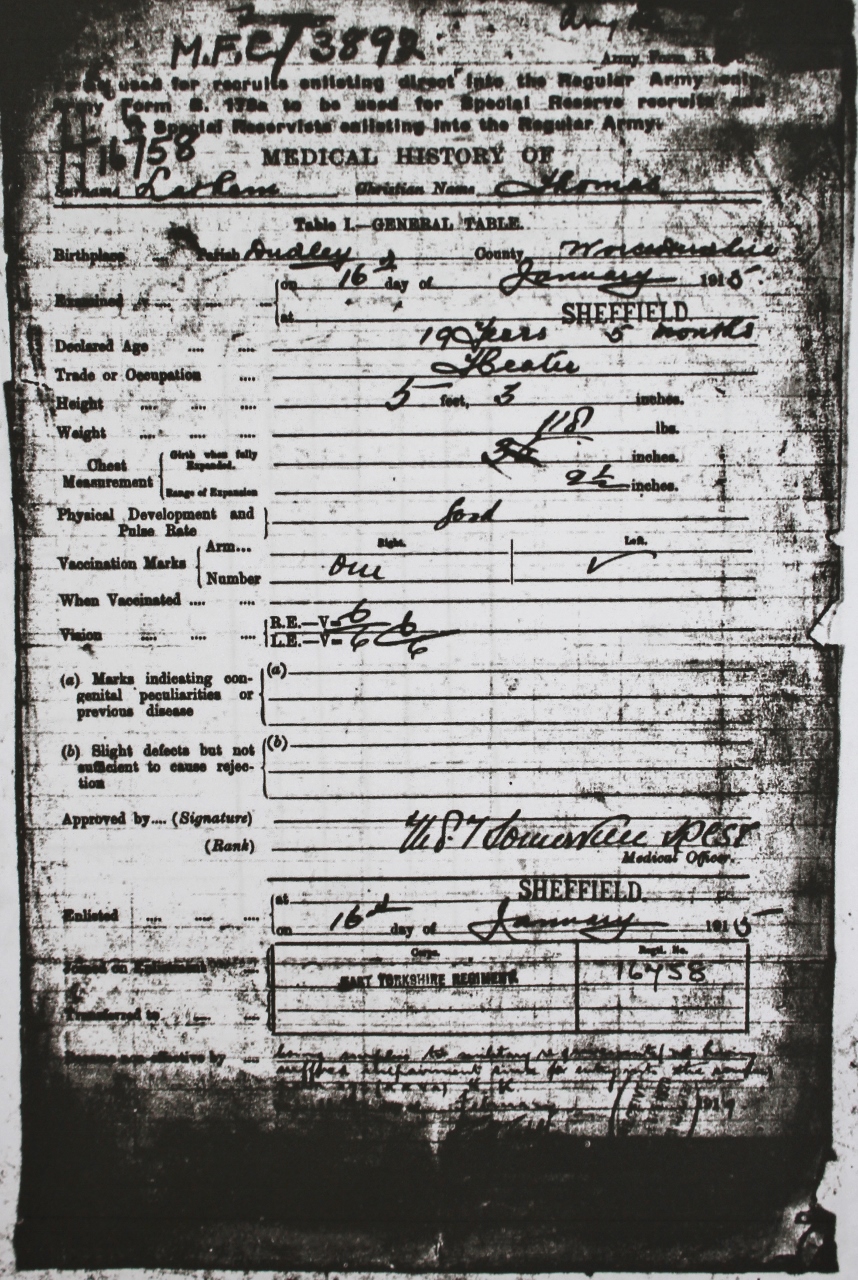 M.F.C/3892
Army Form B.
used for recruits enlisting direct into the Regular Army only
Army Form B. 178a to be used for Special Reserve recruits and
Special Reservists enlisting into the Regular Army.
16758
MEDICAL HISTORY OF
Surname Christian Name Thomas
Table I.—GENERAL TABLE.
Birthplace .... Parish Dudley County Worcestershire
Examined .... .... .... on 16th day of January 1915.
at SHEFFIELD.
Declared Age .... .... 19 Years 5 months
Trade or Occupation .... Heater
Height .... .... .... 5 feet, 3 inches.
Weight .... .... .... 118 lbs.
Chest Measurement Girth when fully Expanded. inches.
Range of Expansion 2½ inches.
Physical Development and Pulse Rate good
Right. Left.
Vaccination Marks Arm...
Number One ✓
When Vaccinated .... ....
Vision .... .... .... R.E.—V= 6
L.E.—V= 6 6/6
(a) Marks indicating con-
genital peculiarities or
previous disease
(a)
(b) Slight defects but not
sufficient to cause rejec-
tion
(b)
Approved by.... (Signature) Somerville
(Rank)
Medical Officer.
Enlisted .... .... .... at SHEFFIELD.
on 16th day of January 1915
Corps. Regtl. No.
Joined on Enlistment .... EAST YORKSHIRE REGIMENT. 16758
Transferred to .... ....
Became non-effective by .... being surplus to military requirements (not having
suffered impairment since his entry into the service)
February 1919